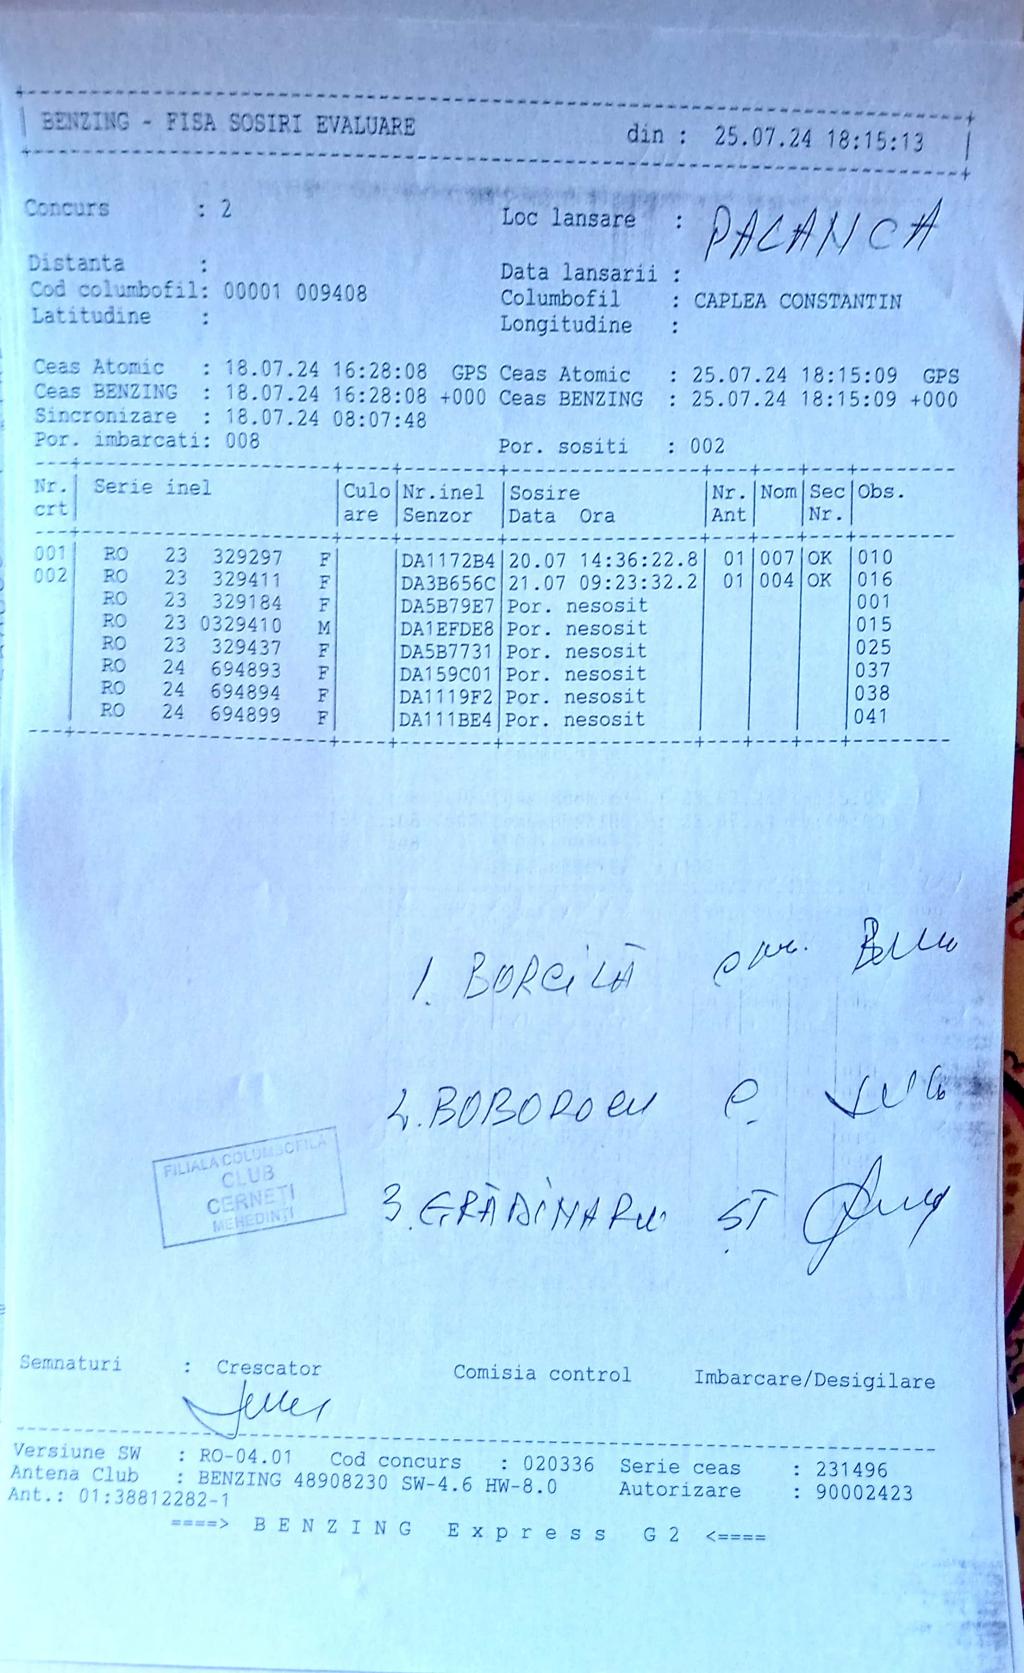 BENZING - FISA SOSIRI EVALUARE din : 25.07.24 18:15:13
Concurs : 2 Loc lansare : PALANCA
Distanta : Data lansarii :
Cod columbofil: 00001 009408 Columbofil : CAPLEA CONSTANTIN
Latitudine : Longitudine :
Ceas Atomic : 18.07.24 16:28:08 GPS Ceas Atomic : 25.07.24 18:15:09 GPS
Ceas BENZING : 18.07.24 16:28:08 +000 Ceas BENZING : 25.07.24 18:15:09 +000
Sincronizare : 18.07.24 08:07:48
Por. imbarcati: 008 Por. sositi : 002
Nr. Serie inel Culo Nr.inel Sosire Nr. Nom Sec Obs.
crt are Senzor Data Ora Ant Nr.
001 RO 23 329297 F DA1172B4 20.07 14:36:22.8 01 007 OK 010
002 RO 23 329411 F DA3B656C 21.07 09:23:32.2 01 004 OK 016
RO 23 329184 F DA5B79E7 Por. nesosit 001
RO 23 0329410 M DA1EFDE8 Por. nesosit 015
RO 23 329437 F DA5B7731 Por. nesosit 025
RO 24 694893 F DA159C01 Por. nesosit 037
RO 24 694894 F DA1119F2 Por. nesosit 038
RO 24 694899 F DA111BE4 Por. nesosit 041
1. BORCILĂ
2. BOBOROCU C.
FILIALA COLUMBOFILA
CLUB
CERNEȚI
MEHEDINȚI
3. GRĂDINARU ST
Semnaturi : Crescator Comisia control Imbarcare/Desigilare
Versiune SW : RO-04.01 Cod concurs : 020336 Serie ceas : 231496
Antena Club : BENZING 48908230 SW-4.6 HW-8.0 Autorizare : 90002423
Ant.: 01:38812282-1
====> BENZING Express G2 <====